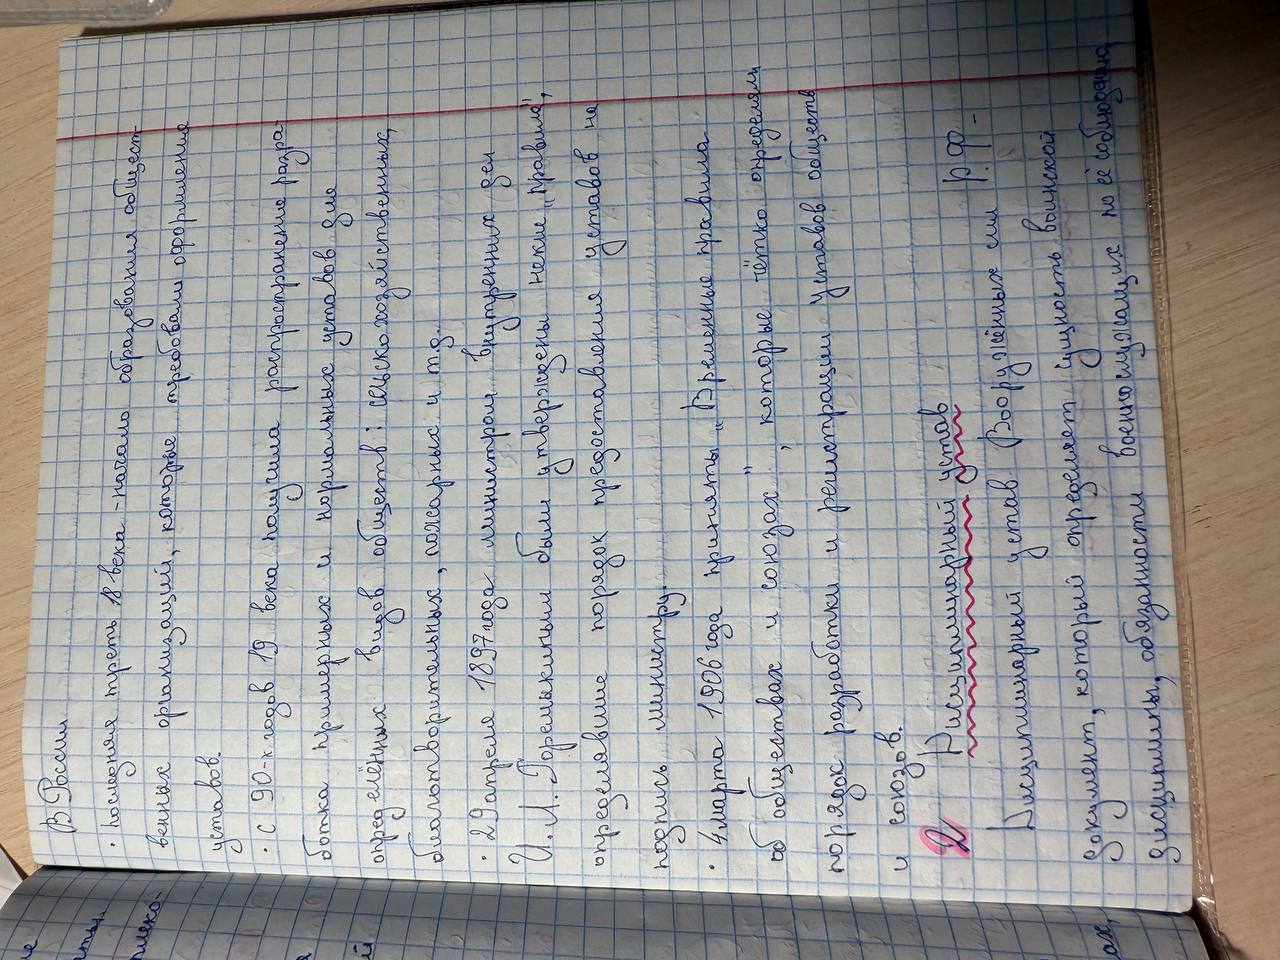 В России
• последняя треть 18 века - начало образования общест-
венных организаций, которые требовали оформления
уставов.
• с 90-х годов 19 века получила распространение разра-
ботка примерных и нормальных уставов для
определённых видов обществ: сельскохозяйственных,
благотворительных, пожарных и т.д.
• 29 апреля 1897 года министром внутренних дел
И. Л. Горемыкиным были утверждены некие „правила",
определявшие порядок предоставления уставов на
подпись министру.
• 4 марта 1906 года приняты „Временные правила
об обществах и союзах", которые чётко определяли
порядок разработки и регистрации уставов обществ
и союзов.
2 Дисциплинарный устав
Дисциплинарный устав Вооружённых сил Р.Ф. -
документ, который определяет сущность воинской
дисциплины, обязанности военнослужащих по её соблюдению,